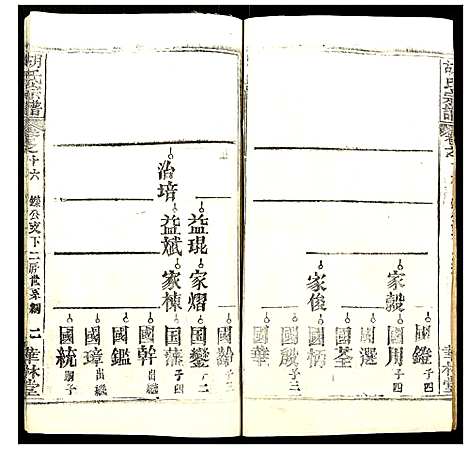 胡氏宗譜
卷之十
華林堂
國鐙 子四
家毅
國用 子四
國選
國荃
家俊
國柄
國殷
國華
國齡 子三
益琨
家熠
國鑾 子二
治培
益斌
家棟
国藩 子二
國幹 出繼
國鑑
國璋 出繼
國統 嗣子
胡氏宗譜
卷之十六
公支下二房世系
二
華林堂